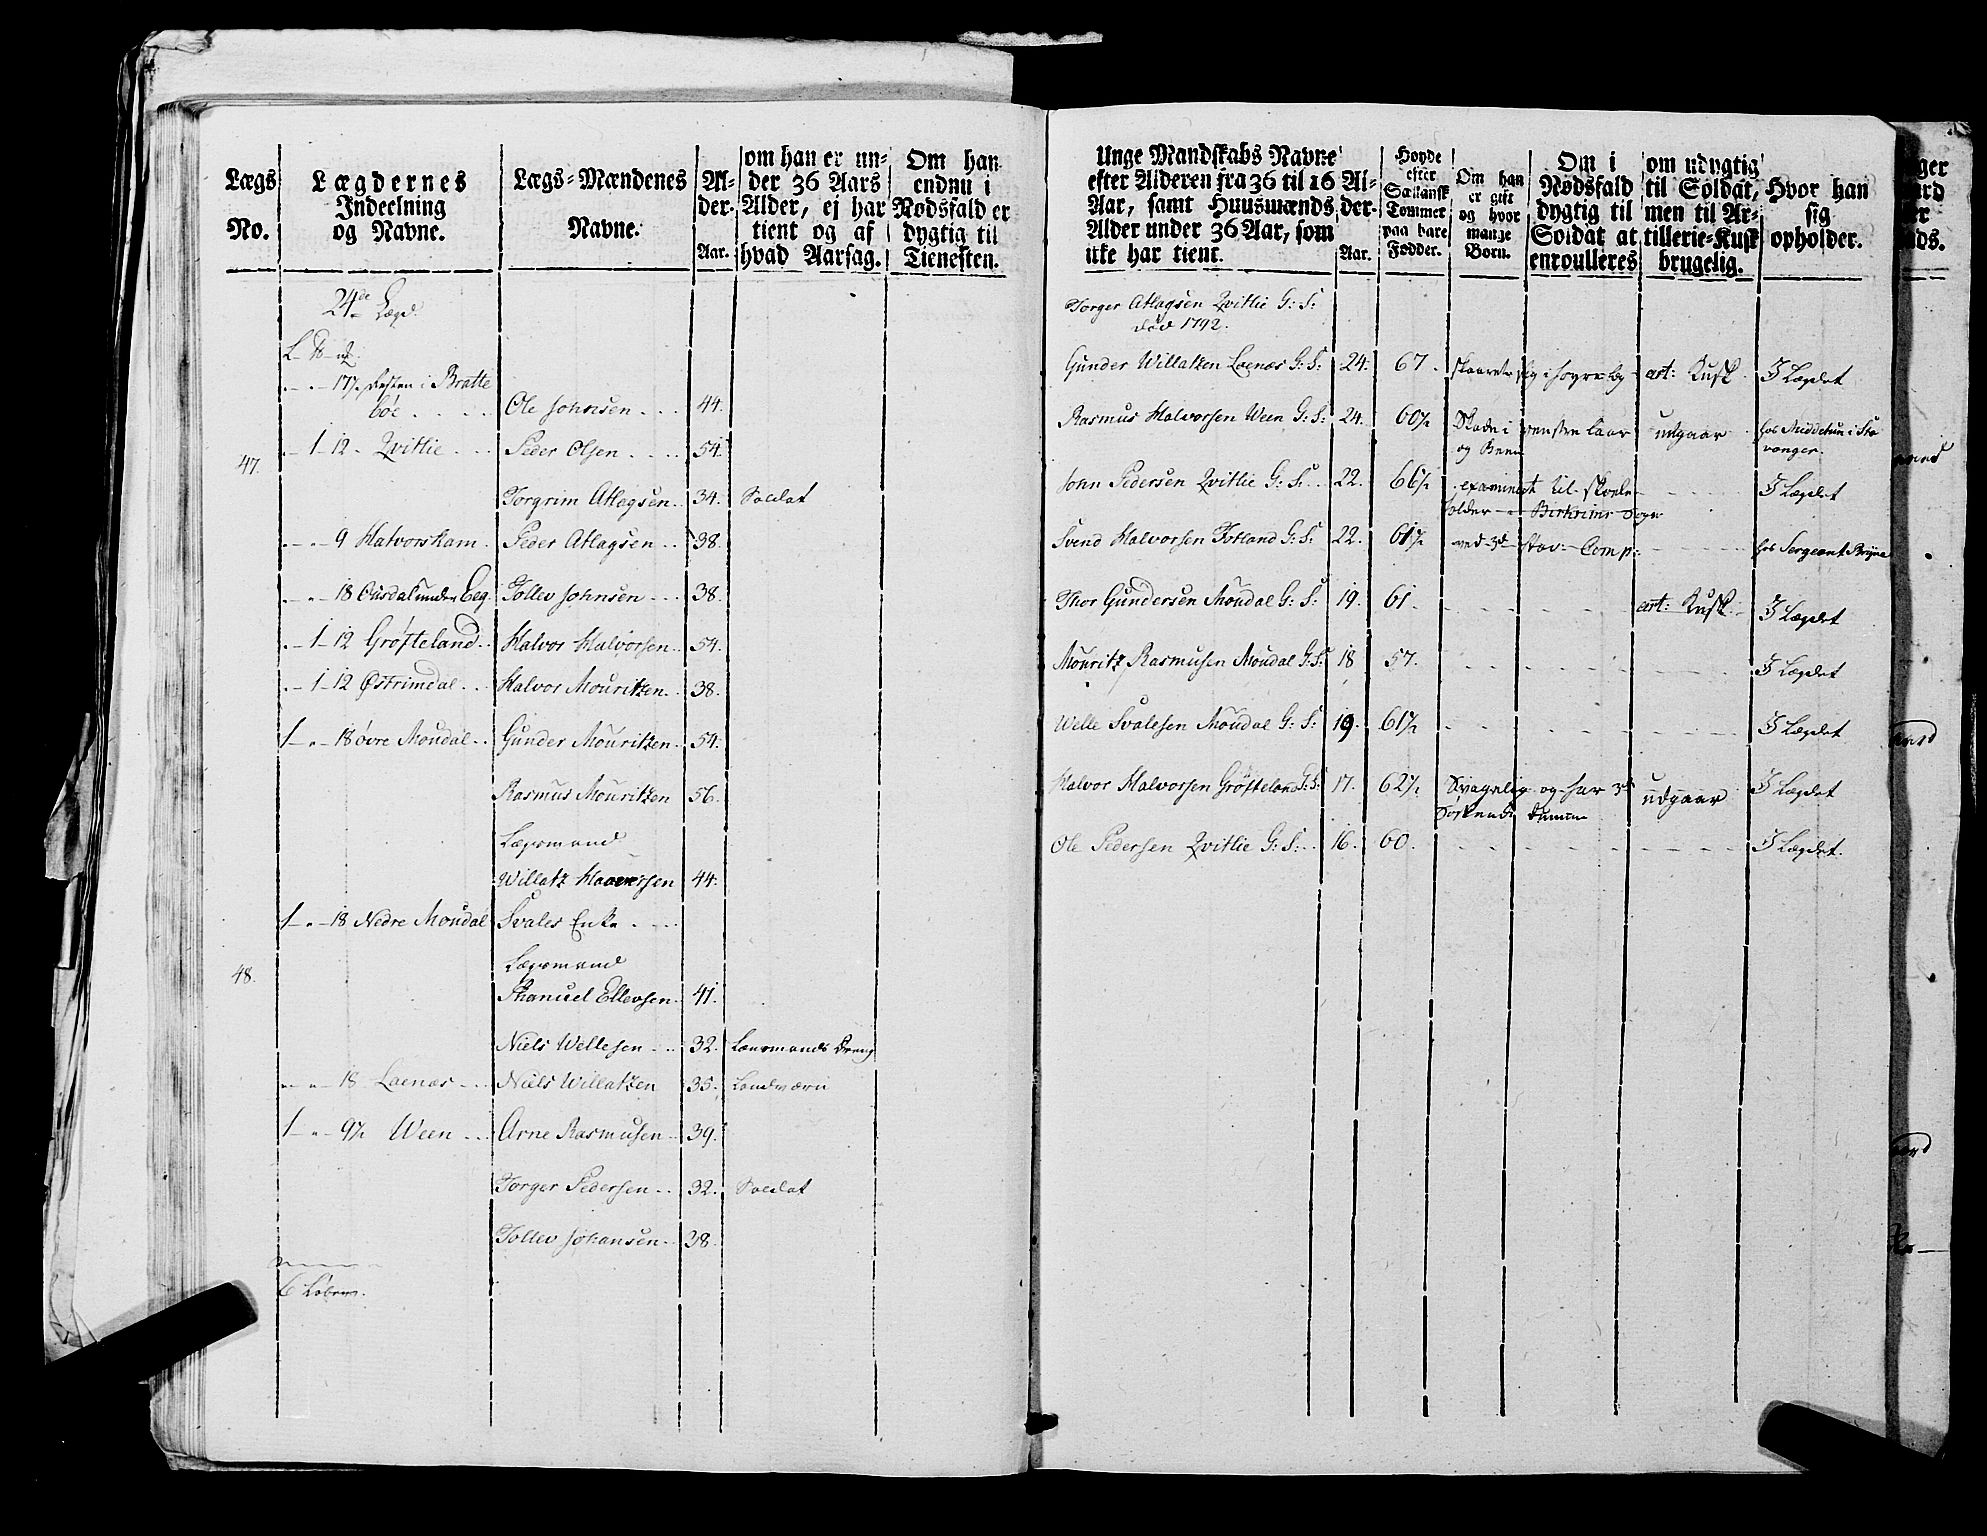 Lægs No.
Lægdernes Indeelning og Navne.
Lægs-Mændenes Navne.
Alder. Aar.
om han er under 36 Aars Alder, ej har tient og af hvad Aarsag.
Om han endnu i Nødsfald er dygtig til Tienesten.
24de Lægd.
- - 17½ Resten i Bratte
böe . . . . Ole Johnsen . . . 44.
47. - 1 - 12 - Qvitlie . . . Peder Olsen . . . . 54.
Torgrim Atlagsen . . 34. Soldat
- - - 9 Halvorskam . Peder Atlagsen . . 38.
- - - 18 Ousdal under Eeg. Tollev Johnsen . . . 38.
- 1 - 12 Gröfteland . . Halvor Halvorsen . . 54.
- 1 - 12 Østrimdal . . . Halvor Mouritzen . . 38.
1 - - - 18 övre Moudal . . Gunder Mouritzen . . 54.
Rasmus Mouritzen 56.
Lægsmand
Willatz 44.
1 - - - 18 Nedre Moudal Svales Enke . . . .
48. Lægsmand
Thanuel Ellevsen . 41.
Niels Wellesen . . . 32. Lensmands Dreng
- - - 18 Loenæs . . . Niels Willatzen 35. Landværn
1 - - - 9½ Ween . . . Arne Rasmusen . . 39.
Torger Pedersen . . 32. Soldat
Tollev Johansen . . 38.
6 Løbern.
Unge Mandskabs Navne efter Alderen fra 36 til 16 Aar, samt Huusmænds Alder under 36 Aar, som ikke har tient.
Alder. Aar.
Høyde efter Siællansk Tommer paa bare Fødder.
Om han er gift og hvor mange Børn.
Om i Nødsfald dygtig til Soldat at enroulleres
om udygtig til Soldat, men til Artillerie-Kusk brugelig.
Hvor han sig opholder.
Torger Atlagsen Qvitlie G: S:
död 1792.
Gunder Willatzen Loenæs G: S: 24. 67. skaaret sig i höyre art: Kusk I Lægdet
Rasmus Halvorsen Ween G: S: 24. 60½ Skade i venstre Laar udgaar hos Middetun i Sta
og Been vanger.
John Pedersen Qvitlie G: S: . . 22. 66½ examineret til skole- I Lægdet
holder i Birkrims Sogn
Svend Halvorsen Totland G: S: 22. 61½ ved 3de Stav: Comp: hos Sergeant Bryne
Thor Gundersen Moudal G: S: 19. 61. art: Kusk. I Lægdet
Mouritz Rasmusen Moudal G: S: 18 57. I Lægdet
Welle Svalesen Moudal G: S: 19. 61½ I Lægdet
Halvor Halvorsen Gröfteland G: S: 17. 62½ Svagelig og har 3de udgaar I Lægdet
Söskende dumme
Ole Pedersen Qvitlie G: S: . . 16. 60. I Lægdet.